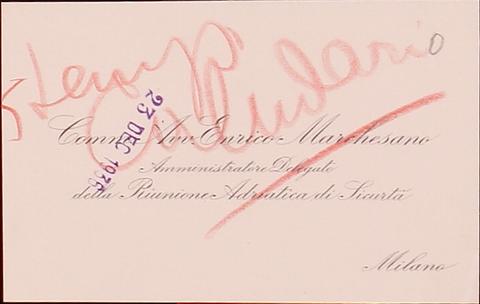 Stamp
Calendario
23 DEC 1935
Comm. Avv. Enrico Marchesano
Amministratore Delegato
della Riunione Adriatica di Sicurtà
Milano